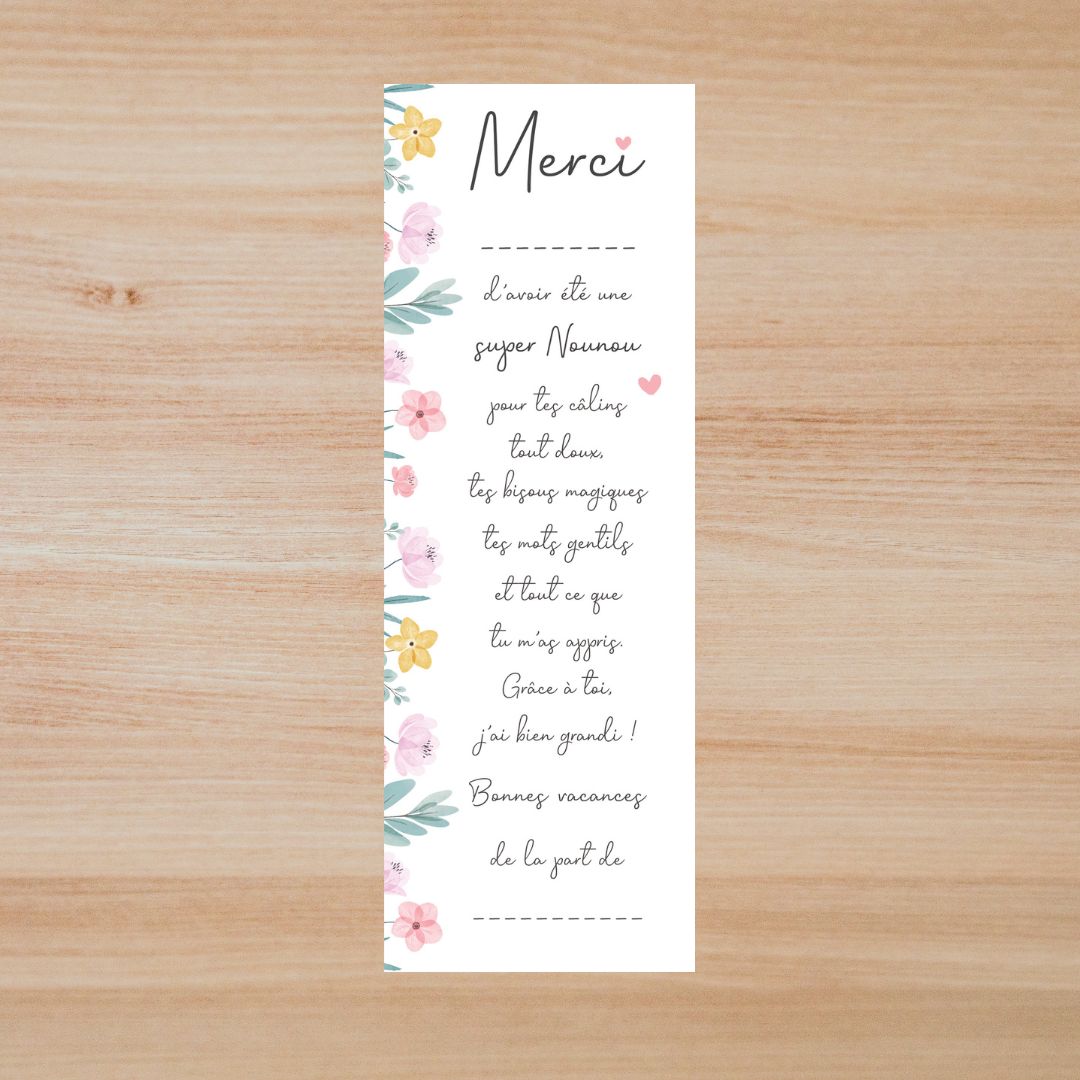 Merci
_ _ _ _ _ _ _ _ _
d'avoir été une
super Nounou
pour tes câlins
tout doux,
tes bisous magiques
tes mots gentils
et tout ce que
tu m'as appris.
Grâce à toi,
j'ai bien grandi !
Bonnes vacances
de la part de
_ _ _ _ _ _ _ _ _ _